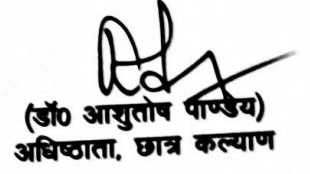 (डॉ0 आशुतोष पाण्डेय)
अधिष्ठाता, छात्र कल्याण